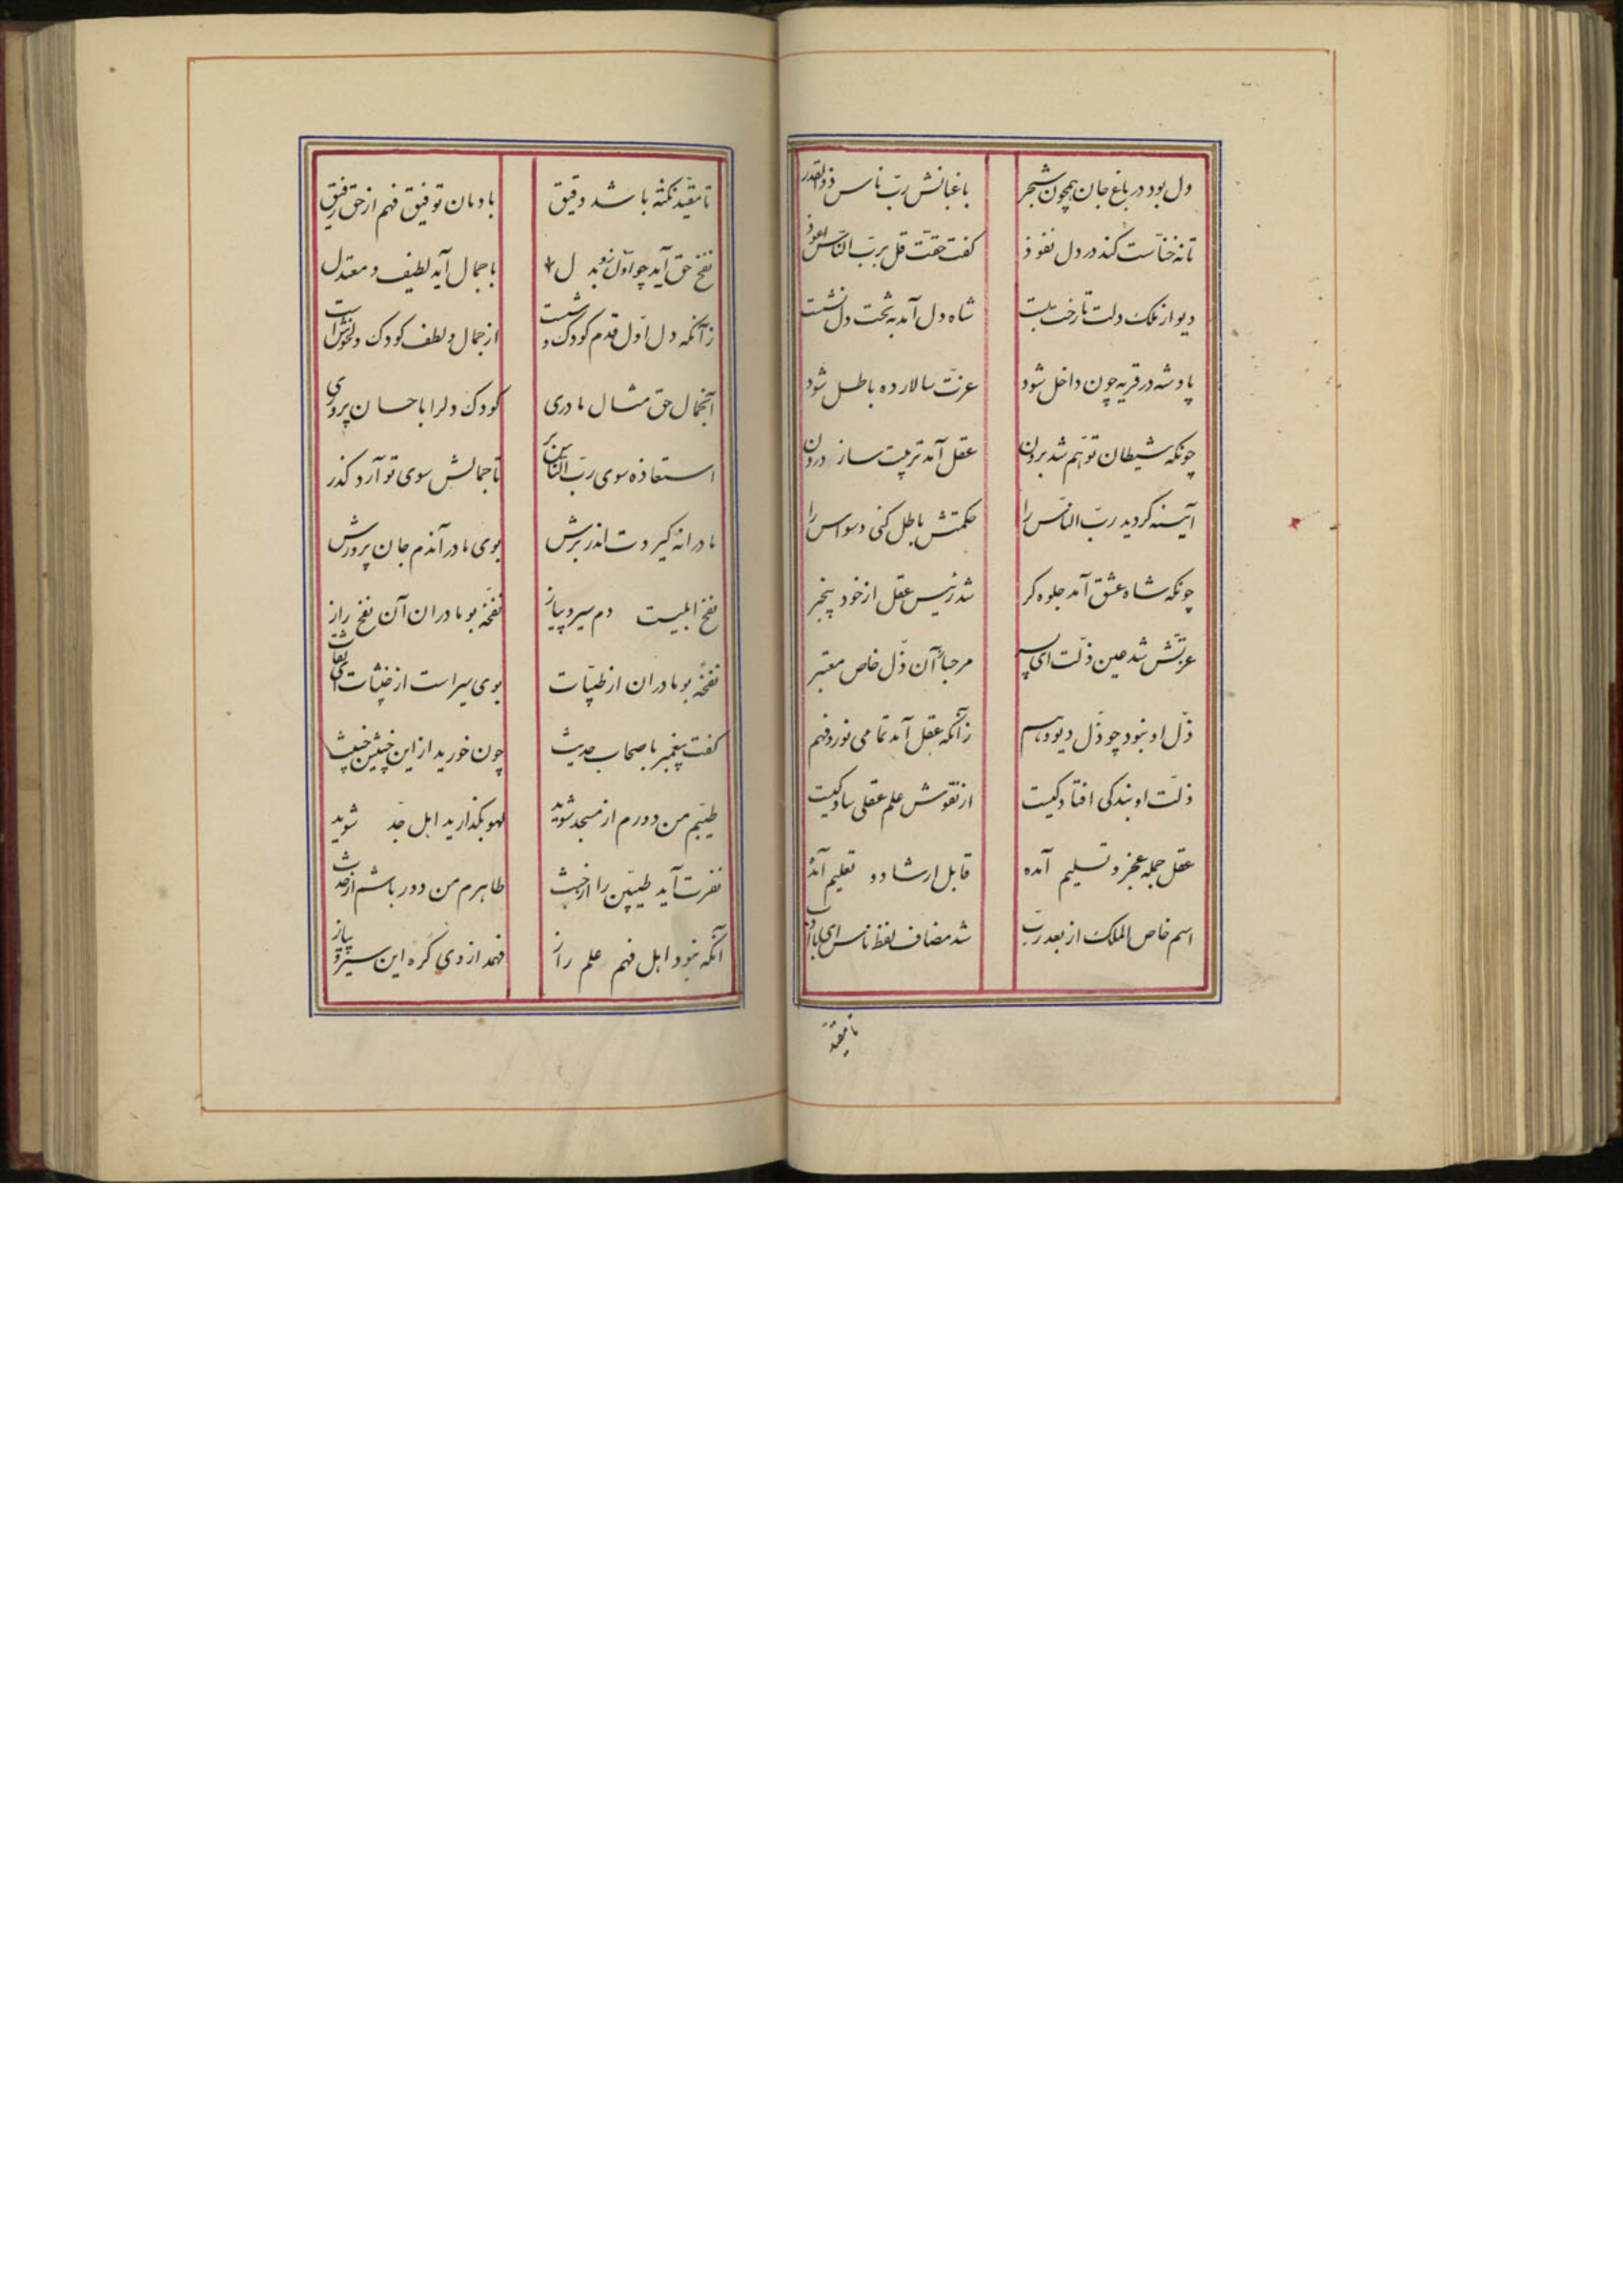 دل بود در باغ جان همچون شجر باغبانش ربّ ناس ذو القدر
تا نه خنّاست کند در دل نفوذ کفت حقت قل بربّ النّاس اعوذ
دیو از ملک دلت تا رخت بست شاه دل آمد به تخت دل نشست
پادشه در قریه چون داخل شود عزت سالار ده باطل شود
چونکه شیطان توهّم شد برون عقل آمد تربیت ساز درون
آینه کردید ربّ النّاس را حکمتش باطل کنی وسواس را
چونکه شاه عشق آمد جلوه کر شد رئیس عقل از خود بیخبر
عزتش شد عین ذلّت ای پسر مرحبا آن ذلّ خاص معتبر
ذلّ او نبود چو ذلّ دیو وهم زآنکه عقل آمد تمامی نور و فهم
ذلّت او بندکی افتادکیست از نقوش علم عقلی سادکیست
عقل جمله عجز و تسلیم آمده قابل ارشاد و تعلیم آمده
اسم خاص الملک از بعد ربّ شد مضاف لفظ ناس ای با ادب
تا مقیّد
تا مقیّد نکته باشد دقیق بادمان توفیق فهم از حق رفیق
نفخ حق آید چو اوّل سوی دل با جمال آید لطیف و معتدل
زآنکه دل اوّل قدم کودک وشست از جمال و لطف کودک دلخوش است
آنجمال حق مثال مادری کودک دلرا باحسان پروری
استعاذه سوی ربّ النّاس بر تا جمالش سوی تو آرد کذر
مادرانه کیردت اندر برش بوی مادر آندم جان پرورش
نفخ ابلیست دم سیر و پیاز نفخهٔ بو مادران آن نفخ راز
نفخهٔ بو مادران از طیّبات بوی سیر است از خبیثات ای ثقات
کفت پیغمبر باصحاب حدیث چون خورید از این خبیثین خبیث
طیّبم من دورم از مسجد شوید لهو بکذارید اهل جدّ شوید
نفرت آید طیبّین را از خبث طاهرم من دور باشم از حدث
آنکه نبود اهل فهم علم راز فهمد از وی کره این سیر و پیاز